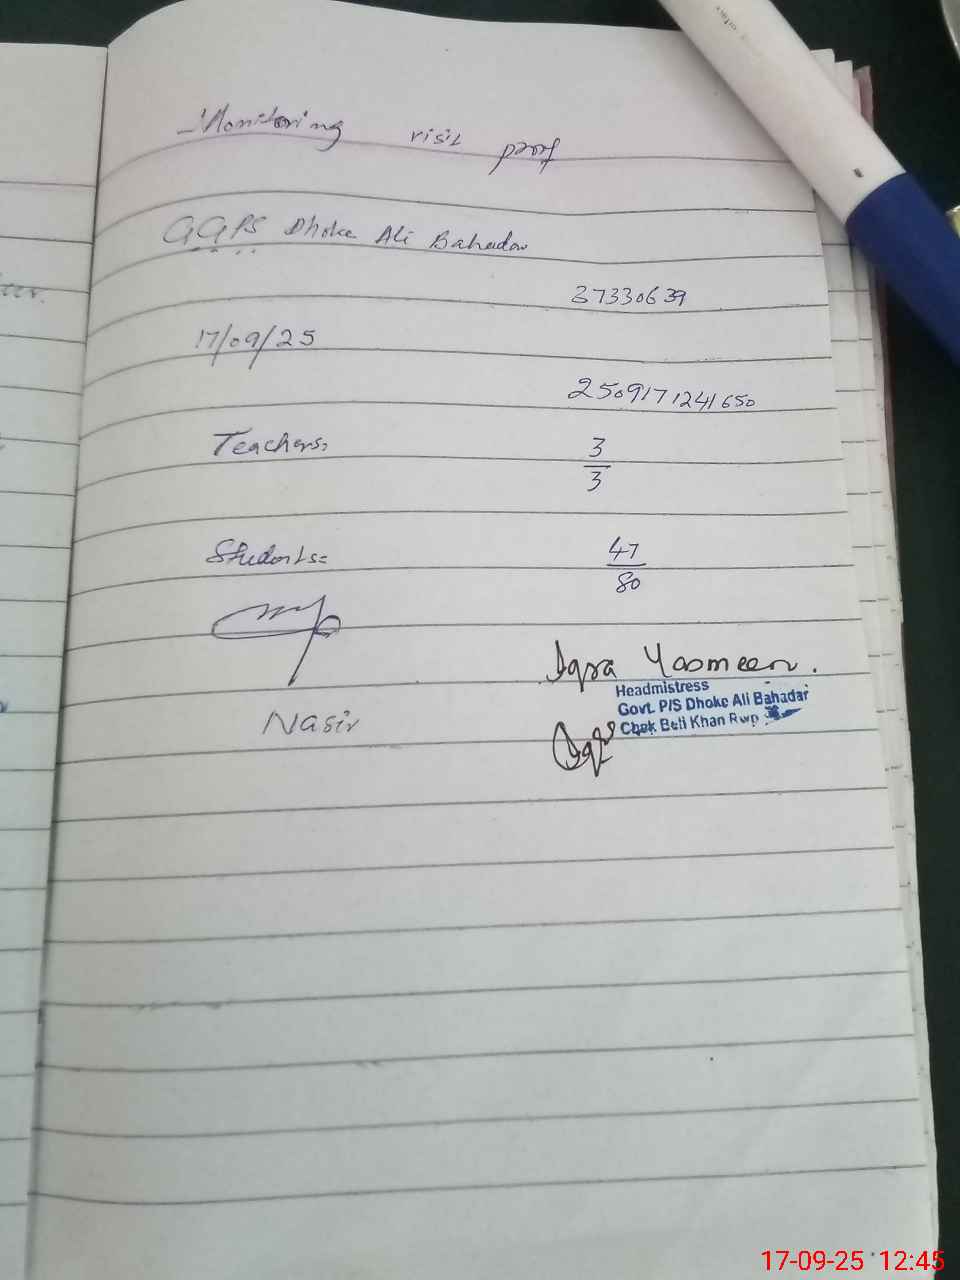 Monitoring visit proof
GGPS Dhoke Ali Bahadar
37330639
17/09/25
2509171241650
Teachers= 3/3
Students= 47/80
Iqra Yasmeen.
Headmistress
Govt. P/S Dhoke Ali Bahadar
Chak Beli Khan Rwp
Nasir
17-09-25 12:45